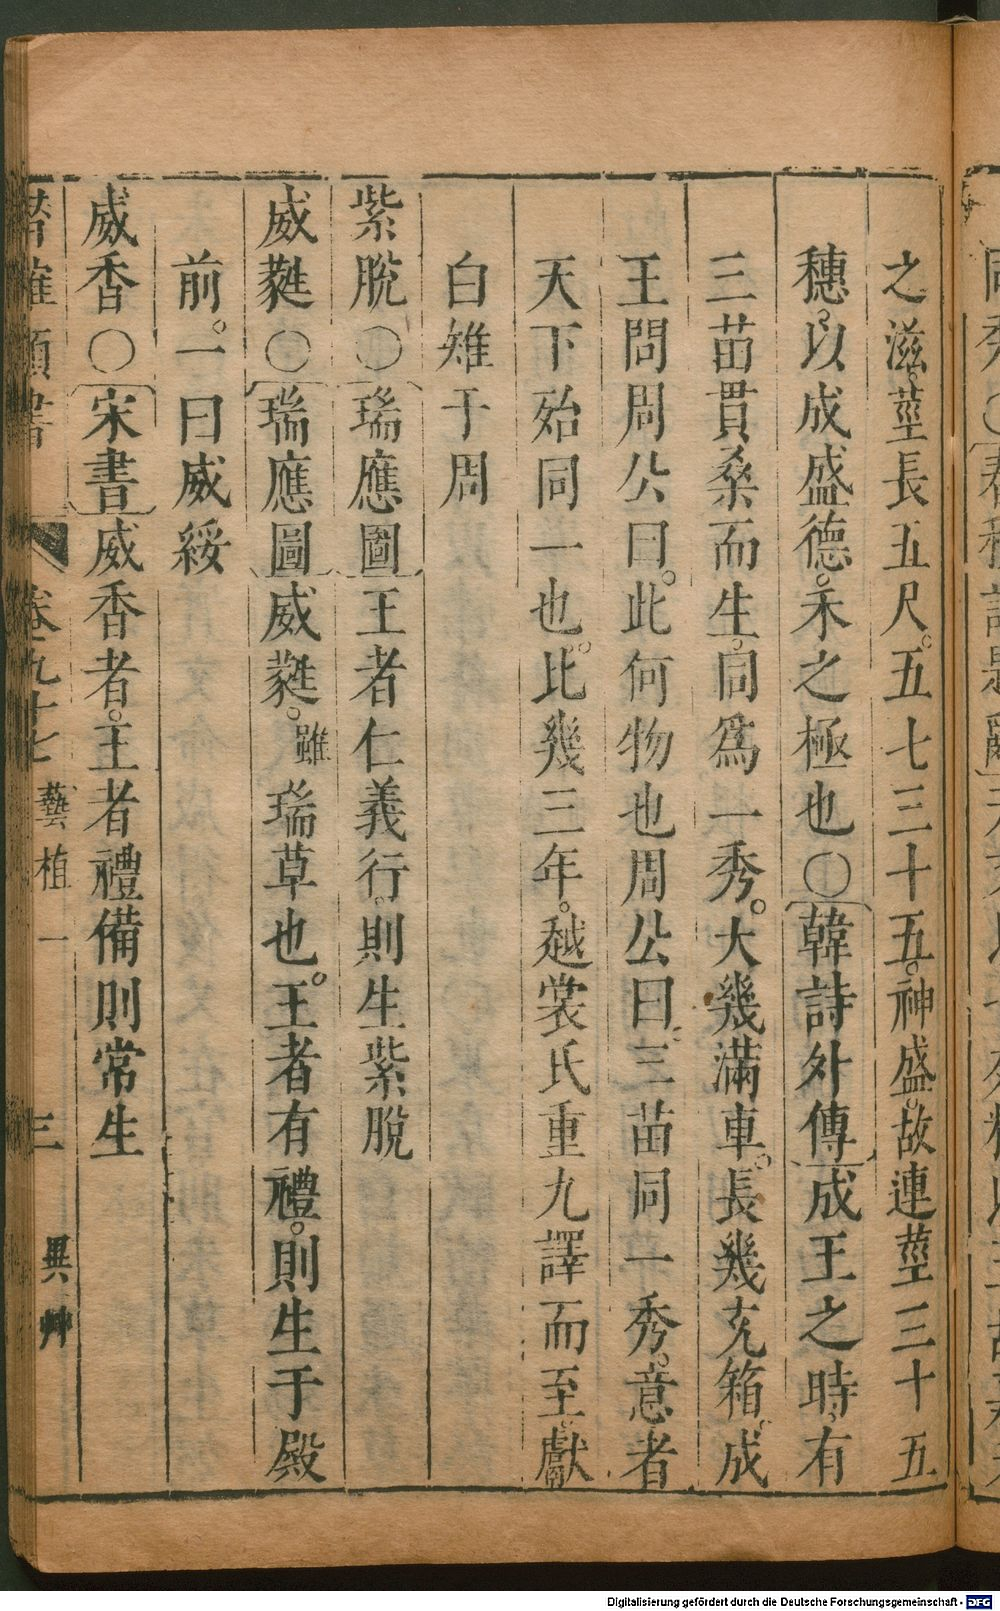 之滋。莖長五尺。五七三十五。神盛。故連莖三十五
穗。以成盛德。禾之極也〇韓詩外傳成王之時。有
三苗貫桑而生。同爲一秀。大幾滿車。長幾充箱。成
王問周公曰。此何物也周公曰。三苗同一秀。意者
天下殆同一也。比幾三年。越裳氏重九譯而至。獻
白雉于周
紫脫〇瑞應圖王者仁義行。則生紫脫
威蕤〇瑞應圖威蕤。雖瑞草也。王者有禮。則生于殿
前。一曰威綏
威香〇宋書威香者。王者禮備則常生
潛確類書 卷九十七 藝植一 三 異艸
Digitalisierung gefördert durch die Deutsche Forschungsgemeinschaft - DFG